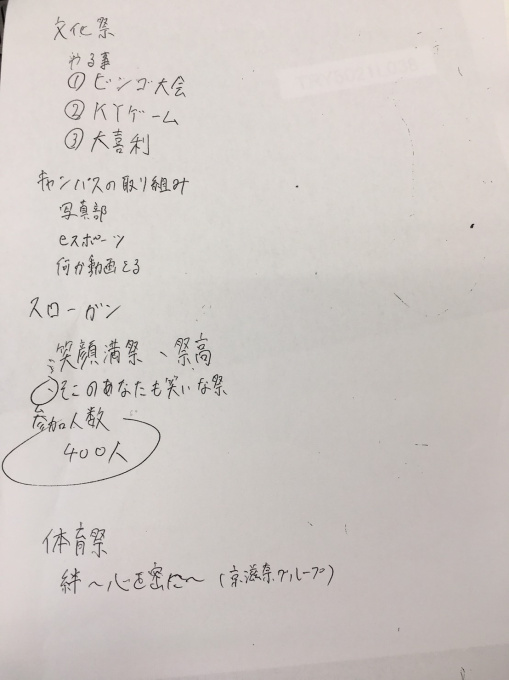 文化祭
やる事
①ビンゴ大会
②KYゲーム
③大喜利
キャンパスの取り組み
写真部
eスポーツ
何か動画とる
スローガン
笑顔満祭、祭高
そこのあなたも笑いな祭
参加人数
400人
体育祭
絆〜心を密に〜(京滋奈グループ)